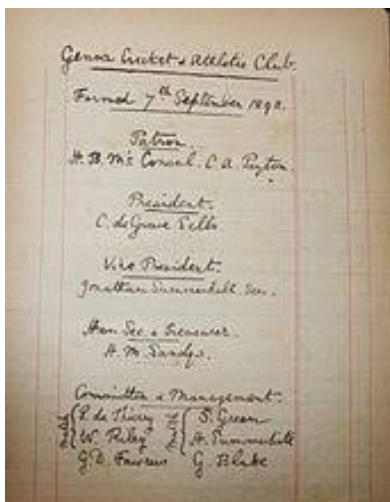 Genoa Cricket & Athletic Club.
Formed 7th September 1893.
Patron.
H. B. M's Consul. C. A. Payton.
President.
C. de Grave Sells
Vice President.
Jonathan Summerhill. Sen.
Hon Sec. & Treasurer.
H. M. Sandys.
Committee & Management.
P. de Thierry S. Green
W. Riley H. Summerhill
G. D. Fawcus G. Blake